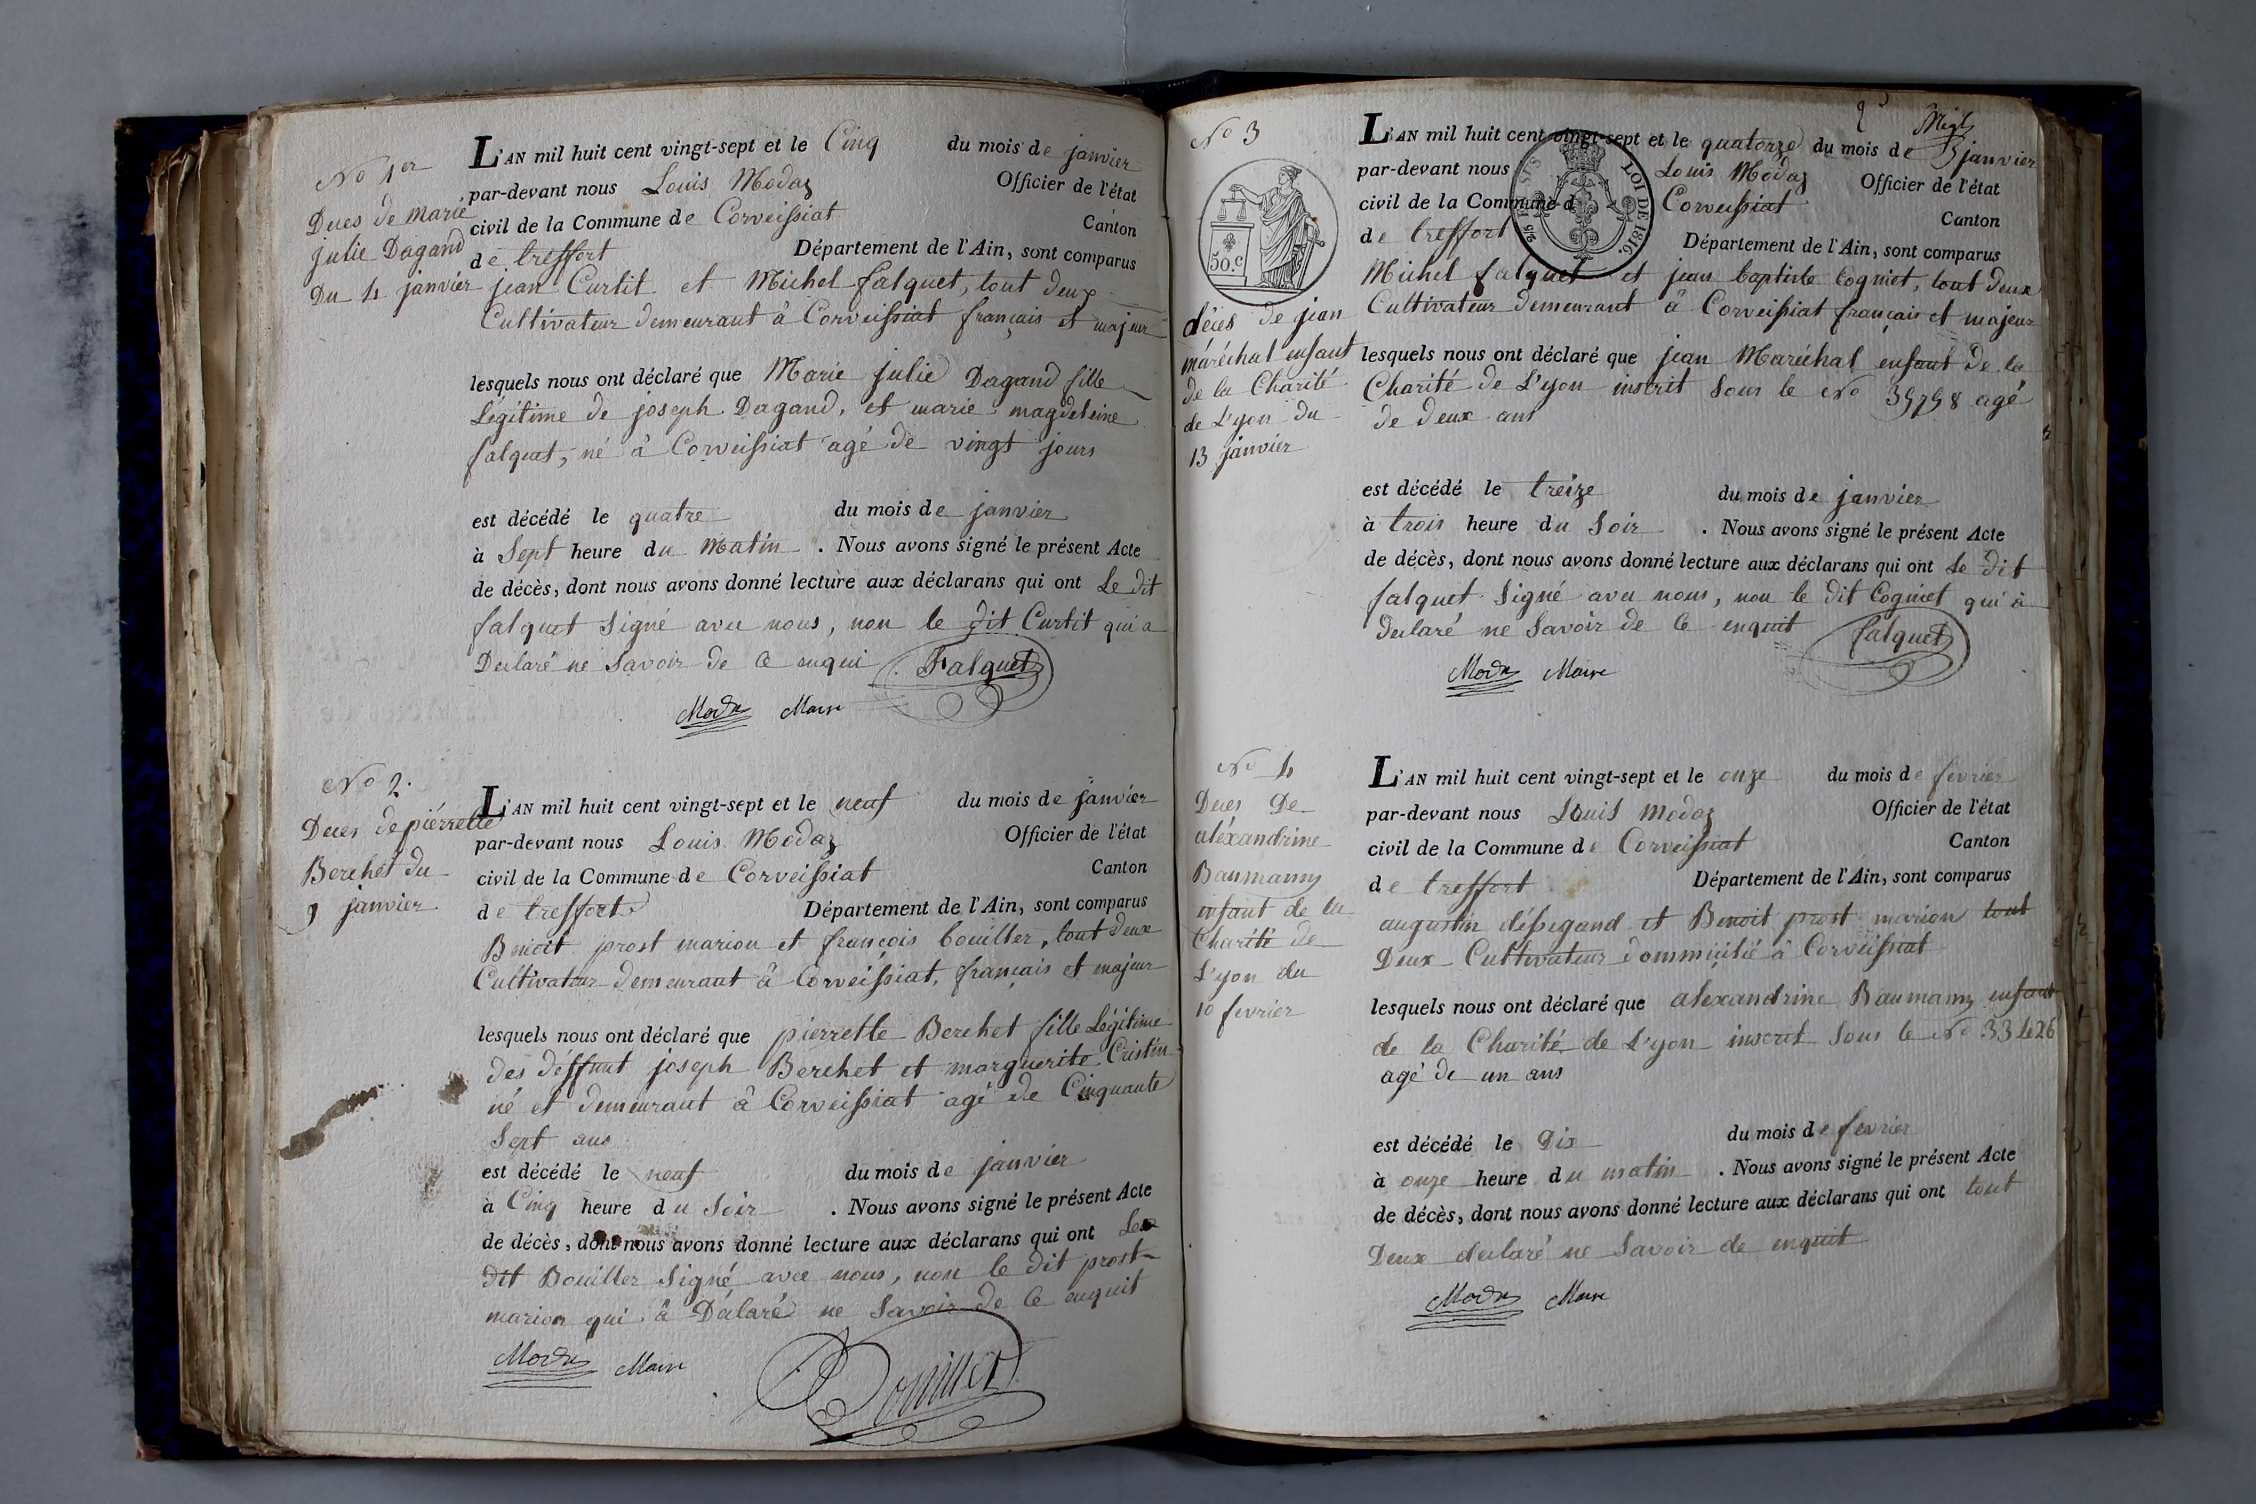 No 1er
Deces de marie
julie Dagand
Du 4 janvier
L'AN mil huit cent vingt-sept et le Cinq du mois de janvier
par-devant nous Louis Modaz Officier de l'état
civil de la Commune de Corveissiat Canton
de treffort Département de l'Ain, sont comparus
jean Curtit et Michel falquet, tout deux
Cultivateur demeurant à Corveissiat français et majeur
lesquels nous ont déclaré que Marie julie Dagand fille
Légitime de joseph Dagand, et marie magdeleine
falquet, né à Corveissiat agé de vingt jours
est décédé le quatre du mois de janvier
à Sept heure du Matin . Nous avons signé le présent Acte
de décès, dont nous avons donné lecture aux déclarans qui ont Le dit
falquet Signé avec nous, non le dit Curtit qui a
Declaré ne Savoir de Ce enqui Falquet
Modaz Maire
No 2.
Deces de pierrette
Berchet du
9 janvier
L'AN mil huit cent vingt-sept et le neuf du mois de janvier
par-devant nous Louis Modaz Officier de l'état
civil de la Commune de Corveissiat Canton
de treffort Département de l'Ain, sont comparus
Benoit prost marion et françois bouiller, tout deux
Cultivateur demeurant à Corveissiat, français et majeur
lesquels nous ont déclaré que pierrette Berchet fille Légitime
des déffunt joseph Berchet et marguerite Cristin
né et demeurant à Corveissiat agé de Cinquante
Sept ans
est décédé le neuf du mois de janvier
à Cinq heure du Soir . Nous avons signé le présent Acte
de décès, dont nous avons donné lecture aux déclarans qui ont Le
dit Bouiller Signé avec nous, non le dit prost
marion qui à Déclaré ne Savoir de Ce enquit
Modaz Maire
Bouiller
No 3
50.c
décès de jean
maréchal enfant
de la Charité
de L'yon du
13 janvier
L'AN mil huit cent vingt-sept et le quatorze du mois de janvier
par-devant nous Louis Modaz Officier de l'état
civil de la Commune de Corveissiat Canton
de treffort Département de l'Ain, sont comparus
LOI DE 1816.
Michel falquet et jean baptiste Cogniet, tout deux
Cultivateur demeurant à Corveissiat français et majeur
lesquels nous ont déclaré que jean Maréchal enfant de la
Charité de L'yon inscrit Sous le No 35758 agé
de deux ans
est décédé le treize du mois de janvier
à trois heure du Soir . Nous avons signé le présent Acte
de décès, dont nous avons donné lecture aux déclarans qui ont Le dit
falquet Signé avec nous, non le dit Cogniet qui à
declaré ne Savoir de Ce enquit falquet
Modaz Maire
No 4
Deces De
aléxandrine
Baumann
enfant de la
Charité de
L'yon du
10 fevrier
L'AN mil huit cent vingt-sept et le onze du mois de fevrier
par-devant nous Louis Modaz Officier de l'état
civil de la Commune de Corveissiat Canton
de treffort Département de l'Ain, sont comparus
augustin déssegand et Benoit prost marion tout
Deux Cultivateur dommicilié à Corveissiat
lesquels nous ont déclaré que alexandrine Baumann enfant
de la Charité de L'yon inscrit Sous le No 33426
agé de un ans
est décédé le Dix du mois de fevrier
à onze heure du matin . Nous avons signé le présent Acte
de décès, dont nous avons donné lecture aux déclarans qui ont tout
Deux declaré ne Savoir de enquit
Modaz Maire